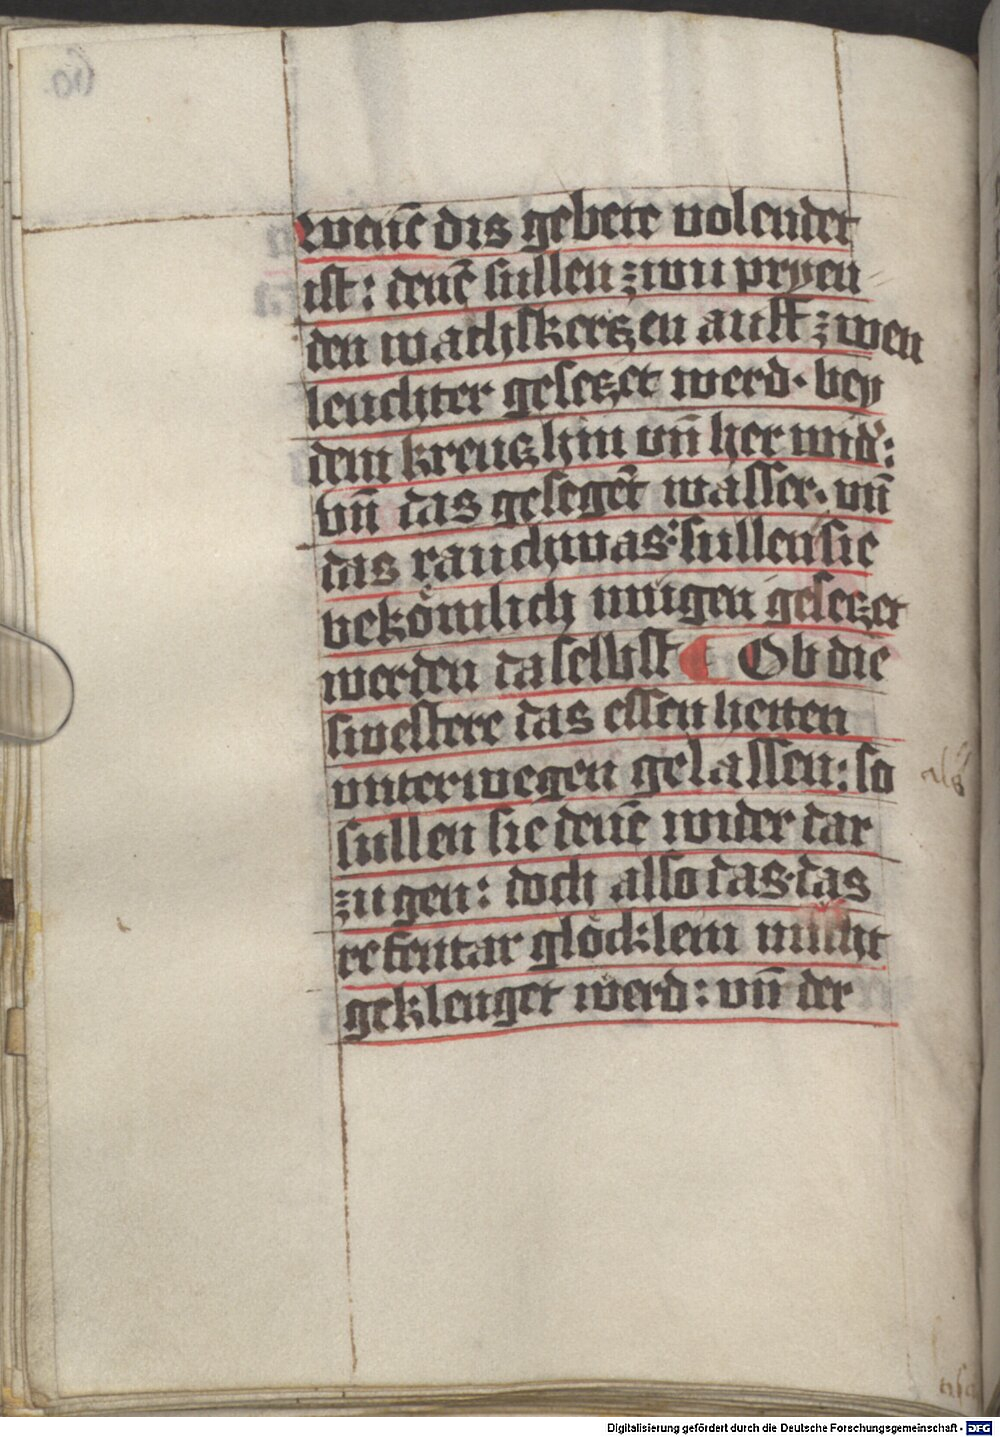 Wenē dis gebete volendet
ist: denē sullen zwu pryen
den wachskerczen auff zwen
leuchter geseczet werd. bey
dem kreucz hin vn̄ her wid̾:
vn̄ das gesegēt wasser. vn̄
das rauchuas: sullen sie
bekömlich mügen geseczet
werden daselbst Ob die
swestere das essen hetten
vnterwegen gelassen: so
sullen sie denē wider dar
zu gen: doch also das das
refentar glöcklein nicht
geklenget werd: vn̄ der
60.
Digitalisierung gefördert durch die Deutsche Forschungsgemeinschaft - DFG